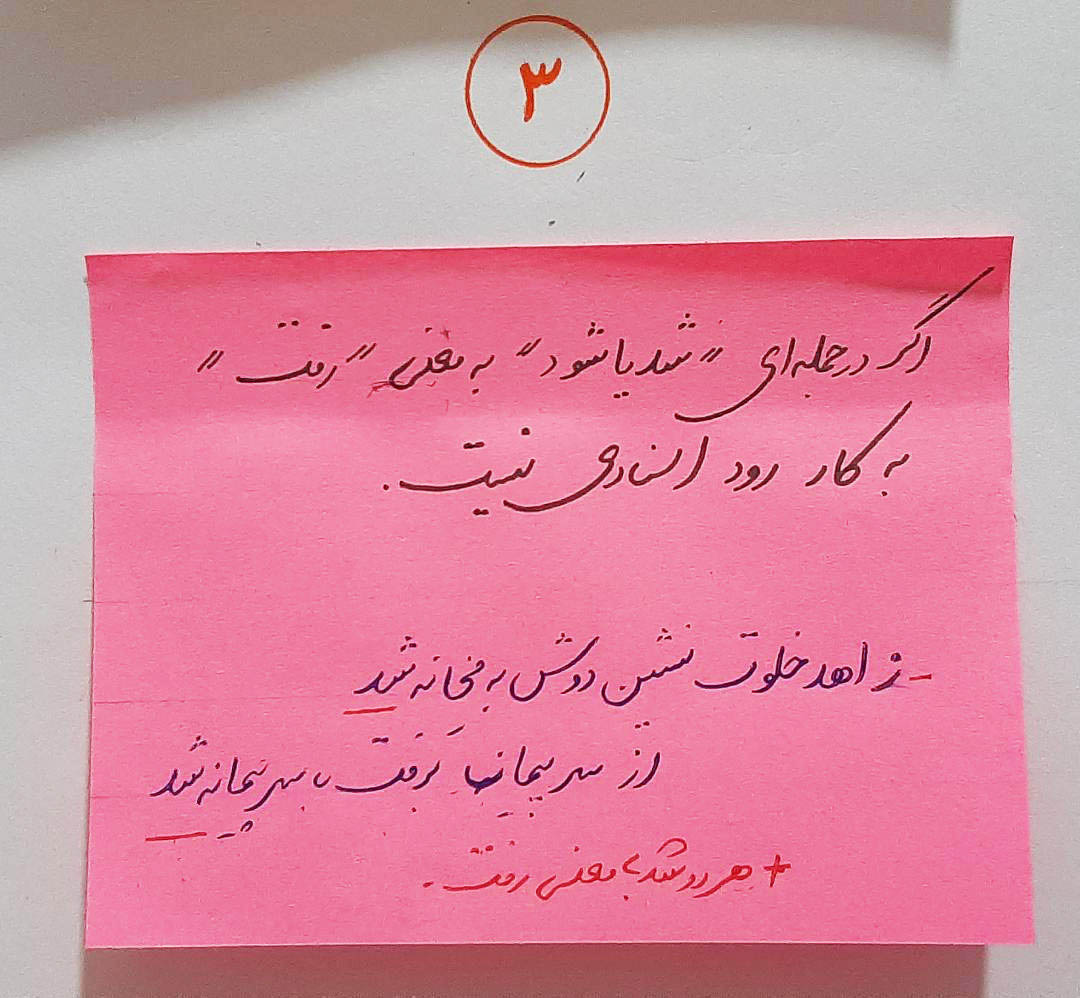 ۳
اگر در جمله‌ای "شد یا شود" به معنی "رفت"
به کار رود اسنادی نیست.
- زاهد خلوت نشین دوش به میخانه شد
از سر پیمان برفت با سر پیمانه شد
+ هر دو شد به معنی رفت.